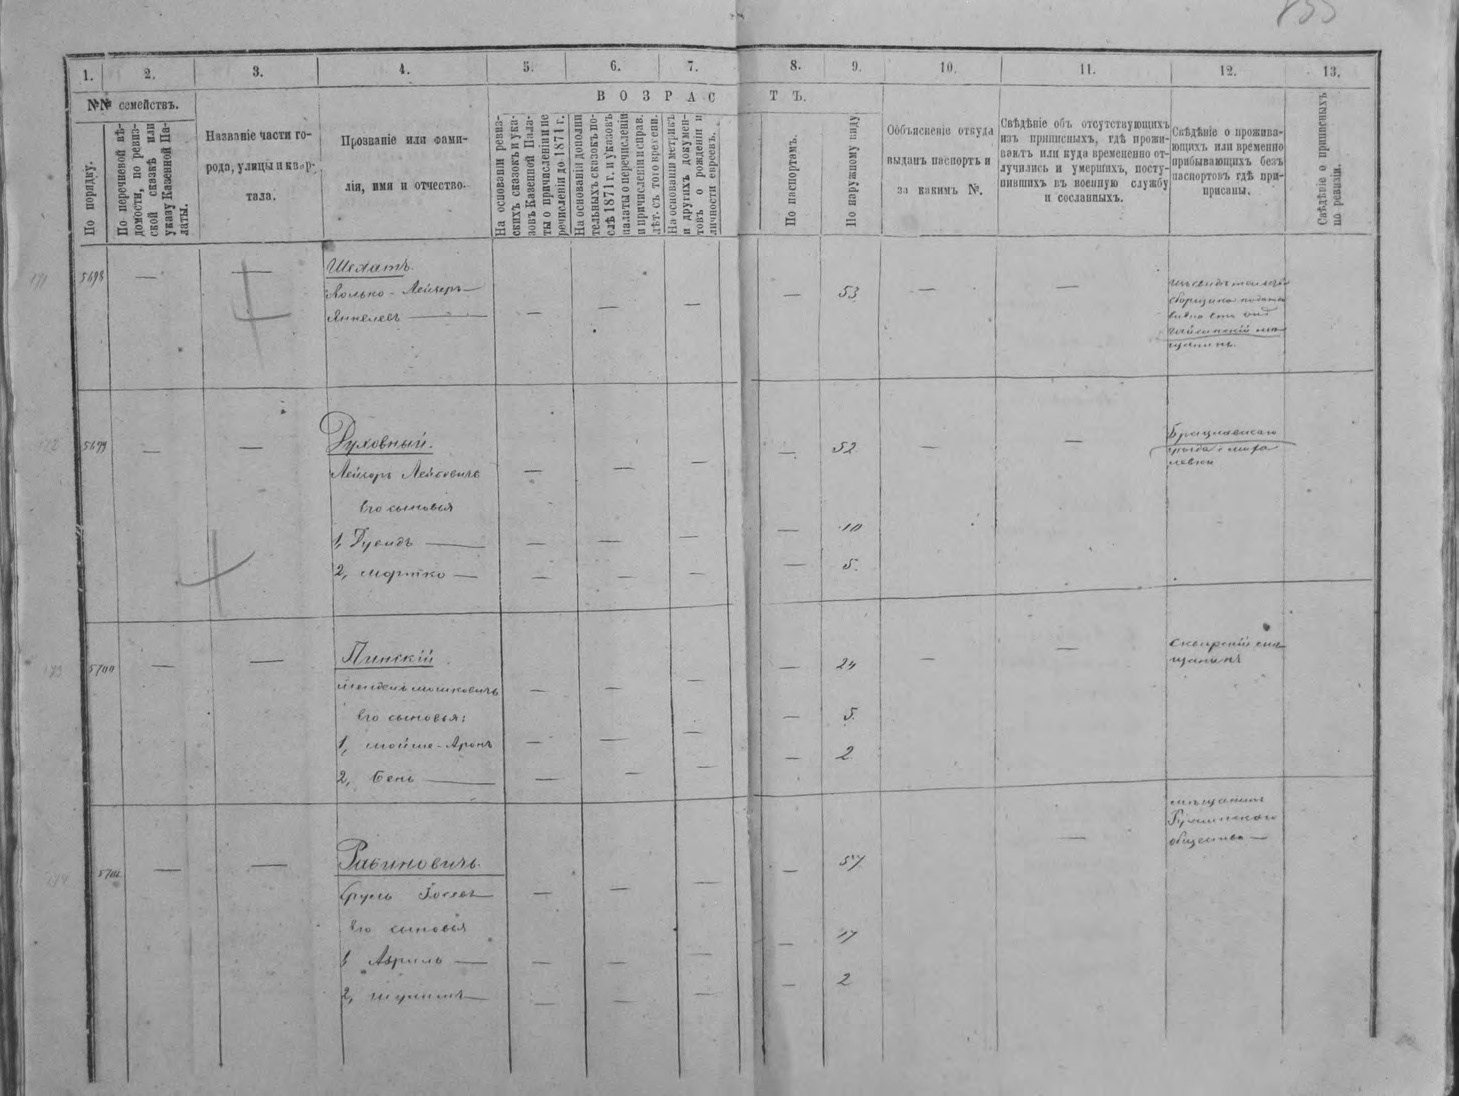 1. 2. 3. 4. 5. 6. 7. 8. 9. 10. 11. 12. 13.
№№ семействъ.
По порядку.
По перечневой вѣ-
домости, по ревиз-
ской сказкѣ или
указу Казенной Па-
латы.
Названіе части го-
рода, улицы и квар-
тала.
Прозваніе или фами-
лія, имя и отчество.
ВОЗРАСТЪ.
На основаніи ревиз-
скихъ сказокъ и ука-
зовъ Казенной Пала-
ты о причисленіи и пе
речисленіи до 1871 г.
На основаніи дополни
тельныхъ сказокъ по-
слѣ 1871 г. и указовъ
палаты о перечисленіи
и причисленіи и справ.
лѣт. съ того времени.
На основаніи метрикъ
и другихъ докумен-
товъ о рожденіи и
личности евреевъ.
По паспортамъ.
По наружному виду
Объясненіе откуда
выданъ паспортъ и
за какимъ №.
Свѣдѣніе объ отсутствующихъ
изъ приписныхъ, гдѣ прожи-
ваютъ или куда временно от-
лучились и умершихъ, посту-
пившихъ въ военную службу
и сосланныхъ.
Свѣдѣніе о прожива-
ющихъ или временно
прибывающихъ безъ
паспортовъ гдѣ при-
писаны.
Свѣдѣніе о приписныхъ
по ревизіи.
171 5698 — — Шехатъ.
Волько-Лейзеръ — — — — 53 — —
Янкелевъ —
172 5699 — — Духовный.
Лейзоръ Лейбовичъ — — — — 52 — — Брацлавскаго
Его сыновья
1, Дувидъ — — — — — 10
2, Мортко — — — — — 5.
173 5700 — — Пинскій
Мендель Мошковичъ — — — 24 — — Сквирскій мѣ-
щанинъ
Его сыновья:
1, Мойше-Аронъ — — — — 5.
2, Бень — — — — — 2
174 5701 — — Рабиновичъ.
Сруль Іосевъ — — — — 57 — — мѣщанинъ
Ружинскаго
общества —
Его сыновья
1, Авриль — — — — — 17
2, — — — — — 2